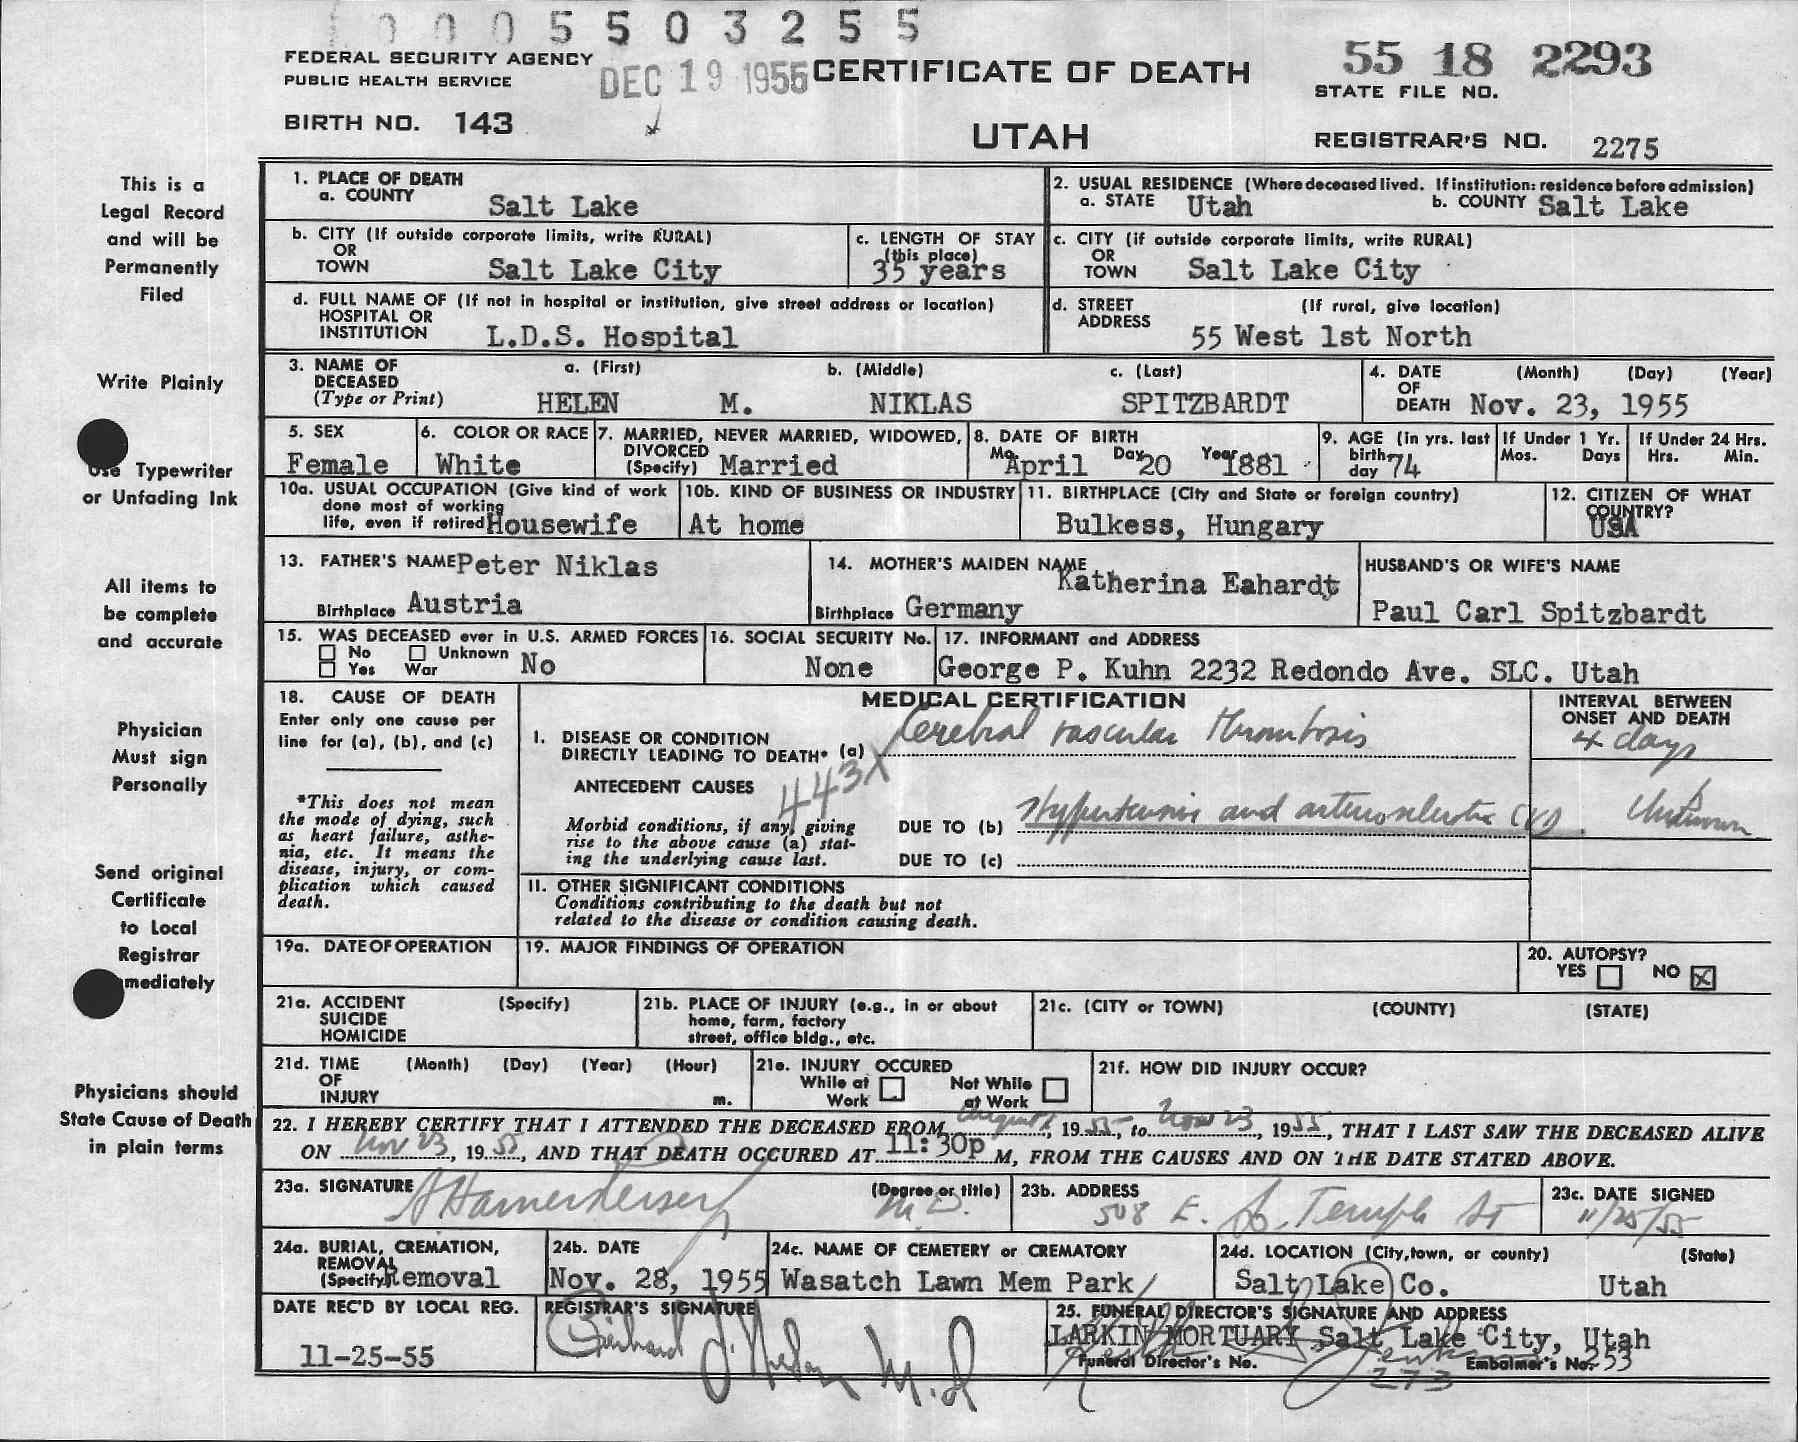 0005503255
FEDERAL SECURITY AGENCY
PUBLIC HEALTH SERVICE
DEC 19 1955
CERTIFICATE OF DEATH
55 18 2293
STATE FILE NO.
BIRTH NO. 143
UTAH
REGISTRAR'S NO. 2275
This is a
Legal Record
and will be
Permanently
Filed
Write Plainly
Use Typewriter
or Unfading Ink
All items to
be complete
and accurate
Physician
Must sign
Personally
Send original
Certificate
to Local
Registrar
mmediately
Physicians should
State Cause of Death
in plain terms
1. PLACE OF DEATH
a. COUNTY Salt Lake
2. USUAL RESIDENCE (Where deceased lived. If institution: residence before admission)
a. STATE Utah b. COUNTY Salt Lake
b. CITY (If outside corporate limits, write RURAL)
OR
TOWN Salt Lake City
c. LENGTH OF STAY
(this place)
35 years
c. CITY (if outside corporate limits, write RURAL)
OR
TOWN Salt Lake City
d. FULL NAME OF (If not in hospital or institution, give street address or location)
HOSPITAL OR
INSTITUTION L.D.S. Hospital
d. STREET (If rural, give location)
ADDRESS
55 West 1st North
3. NAME OF
DECEASED
(Type or Print)
a. (First) b. (Middle) c. (Last)
HELEN M. NIKLAS SPITZBARDT
4. DATE (Month) (Day) (Year)
OF
DEATH Nov. 23, 1955
5. SEX
Female
6. COLOR OR RACE
White
7. MARRIED, NEVER MARRIED, WIDOWED,
DIVORCED
(Specify) Married
8. DATE OF BIRTH
Mo. April Day 20 Year 1881
9. AGE (in yrs. last
birth-
day 74
If Under 1 Yr.
Mos. Days
If Under 24 Hrs.
Hrs. Min.
10a. USUAL OCCUPATION (Give kind of work
done most of working
life, even if retired Housewife
10b. KIND OF BUSINESS OR INDUSTRY
At home
11. BIRTHPLACE (City and State or foreign country)
Bulkess, Hungary
12. CITIZEN OF WHAT
COUNTRY?
USA
13. FATHER'S NAME Peter Niklas
Birthplace Austria
14. MOTHER'S MAIDEN NAME
Katherina Eahardt
Birthplace Germany
HUSBAND'S OR WIFE'S NAME
Paul Carl Spitzbardt
15. WAS DECEASED ever in U.S. ARMED FORCES
No Unknown
Yes War No
16. SOCIAL SECURITY No.
None
17. INFORMANT and ADDRESS
George P. Kuhn 2232 Redondo Ave. SLC. Utah
18. CAUSE OF DEATH
Enter only one cause per
line for (a), (b), and (c)
*This does not mean
the mode of dying, such
as heart failure, asthe-
nia, etc. It means the
disease, injury, or com-
plication which caused
death.
MEDICAL CERTIFICATION
I. DISEASE OR CONDITION
DIRECTLY LEADING TO DEATH* (a) Cerebral vascular thrombosis
ANTECEDENT CAUSES
443X
Morbid conditions, if any, giving
rise to the above cause (a) stat-
ing the underlying cause last.
DUE TO (b) Hypertensive and arteriosclerotic CVD.
DUE TO (c)
INTERVAL BETWEEN
ONSET AND DEATH
4 days
Unknown
II. OTHER SIGNIFICANT CONDITIONS
Conditions contributing to the death but not
related to the disease or condition causing death.
19a. DATE OF OPERATION
19. MAJOR FINDINGS OF OPERATION
20. AUTOPSY?
YES NO X
21a. ACCIDENT (Specify)
SUICIDE
HOMICIDE
21b. PLACE OF INJURY (e.g., in or about
home, farm, factory
street, office bldg., etc.
21c. (CITY or TOWN) (COUNTY) (STATE)
21d. TIME (Month) (Day) (Year) (Hour)
OF
INJURY m.
21e. INJURY OCCURED
While at Not While
Work at Work
21f. HOW DID INJURY OCCUR?
22. I HEREBY CERTIFY THAT I ATTENDED THE DECEASED FROM August, 1955, to Nov 23, 1955, THAT I LAST SAW THE DECEASED ALIVE
ON Nov 23, 1955, AND THAT DEATH OCCURED AT 11:30p M, FROM THE CAUSES AND ON THE DATE STATED ABOVE.
23a. SIGNATURE (Degree or title)
M.D.
23b. ADDRESS
508 E. So. Temple St
23c. DATE SIGNED
11/25/55
24a. BURIAL, CREMATION,
REMOVAL
(Specify) Removal
24b. DATE
Nov. 28, 1955
24c. NAME OF CEMETERY or CREMATORY
Wasatch Lawn Mem Park
24d. LOCATION (City, town, or county) (State)
Salt Lake Co. Utah
DATE REC'D BY LOCAL REG.
11-25-55
REGISTRAR'S SIGNATURE
M.D
25. FUNERAL DIRECTOR'S SIGNATURE AND ADDRESS
LARKIN MORTUARY Salt Lake City, Utah
Funeral Director's No. 273 Embalmer's No. 253